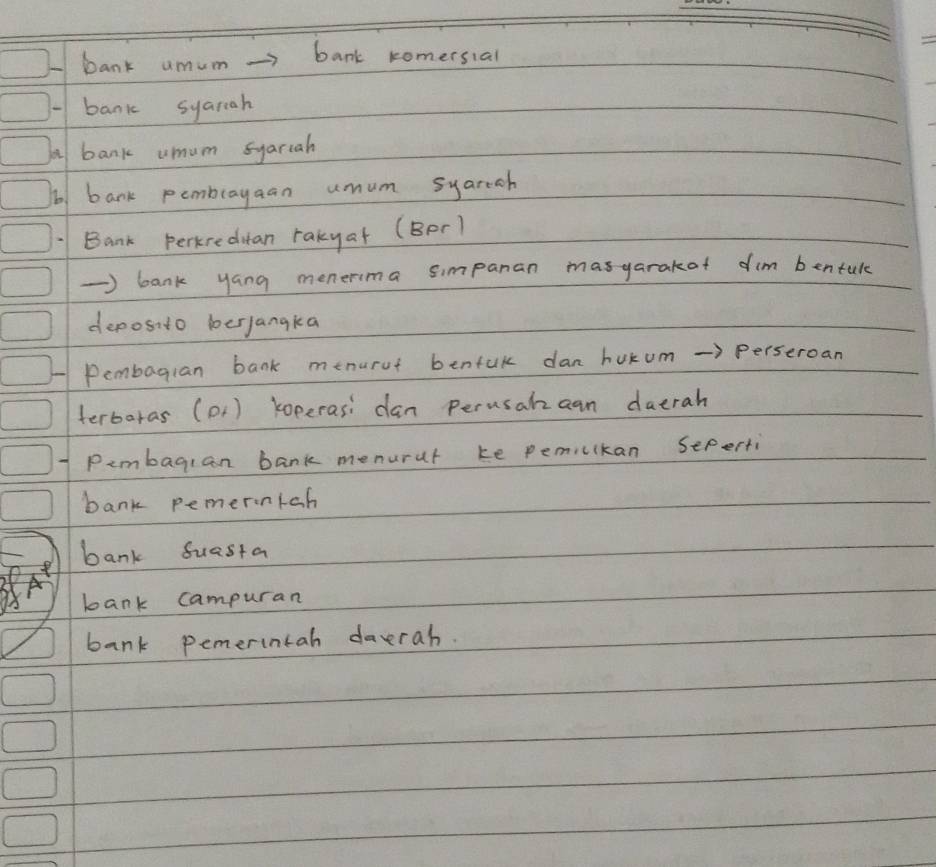 - bank umum → bank komersial
- bank syariah
a bank umum syariah
b. bank pembiayaan umum syariah
- Bank Perkreditan rakyat (BPr)
→ bank yang menerima simpanan masyarakat dlm bentuk
deposito berjangka
- Pembagian bank menurut bentuk dan hukum → Perseroan
terbatas (Pt) koperasi dan Perusahaan daerah
- Pembagian bank menurut ke pemilikan Seperti
bank Pemerintah
bank suasta
A+
bank campuran
bank pemerintah daerah.